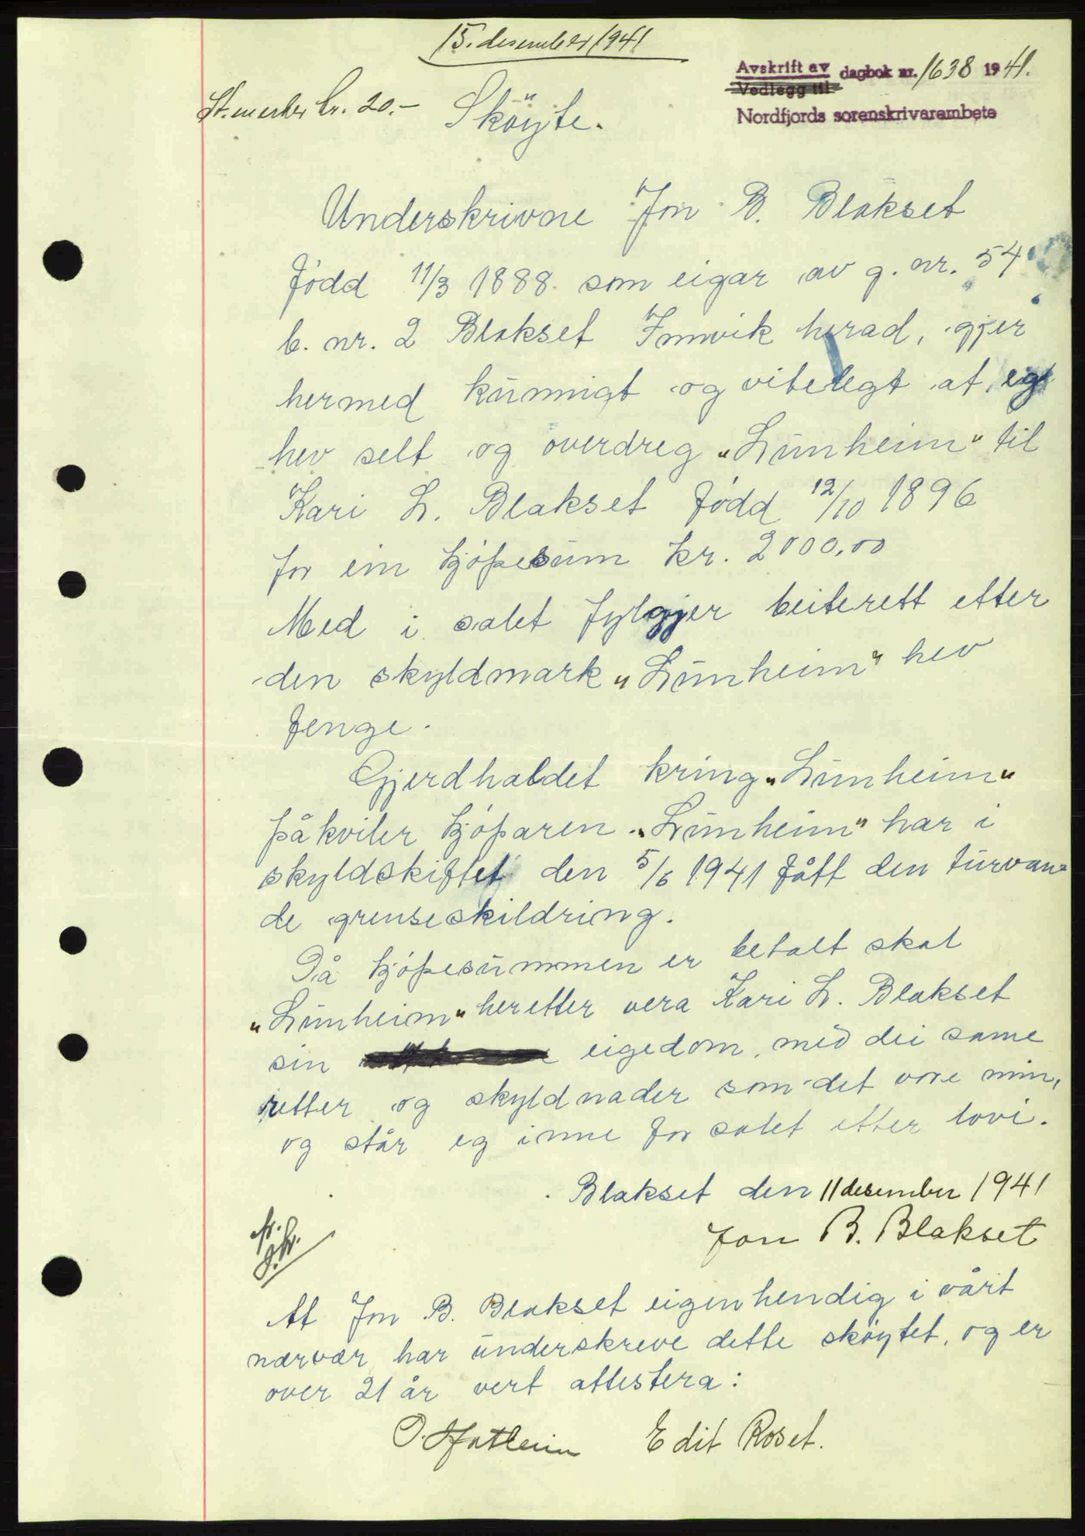 15. desember 1941
Avskrift av dagbok nr. 1638 1941.
Vedlegg til
Nordfjords sorenskrivarembete
St.merke kr. 20.-
Sköyte.
Underskrivne Jon B. Blakset
född 11/3 1888 som eigar av g. nr. 54
b. nr. 2 Blakset Innvik herad, gjer
hermed kunnigt og vitelegt at eg
hev selt og overdreg "Lunheim" til
Kari L. Blakset född 12/10 1896
for ein kjöpesum kr. 2000,00
Med i salet fylgjer beiterett etter
den skyldmark "Lunheim" hev
fenge.
Gjerdhaldet kring "Lunheim"
påkviler kjöparen. "Lunheim" har i
skyldskiftet den 5/6 1941 fått den turvan-
de grenseskildring.
Då kjöpesummen er betalt skal
"Lunheim" heretter vera Kari L. Blakset
sin eigedom, med dei same
retter og skyldnader som det vore min,
og står eg inne for salet etter lovi.
Blakset den 11 desember 1941
Jon B. Blakset
At Jon B. Blakset eigenhendig i vårt
nærvær har underskreve dette sköytet, og er
over 21 år vert attestera:
Edit Roset.